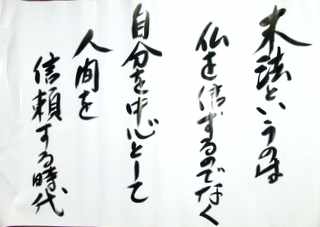 末法というのは
仏を信ずるのでなく
自分を中心として
人間を
信頼する時代